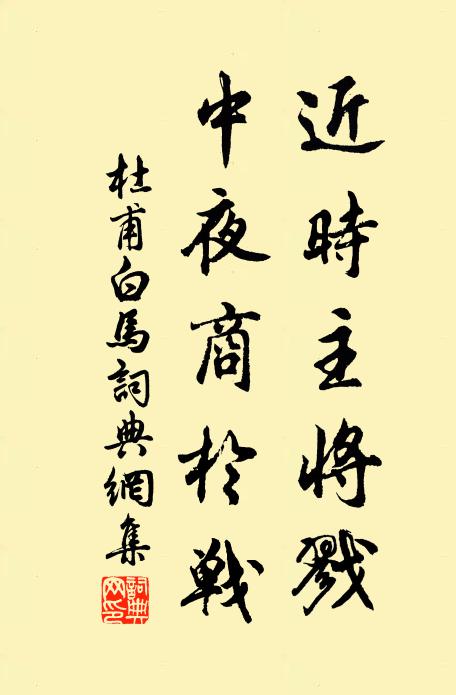 近時主將戮
中夜商於戦
杜甫白馬詞典網集
詞典网印